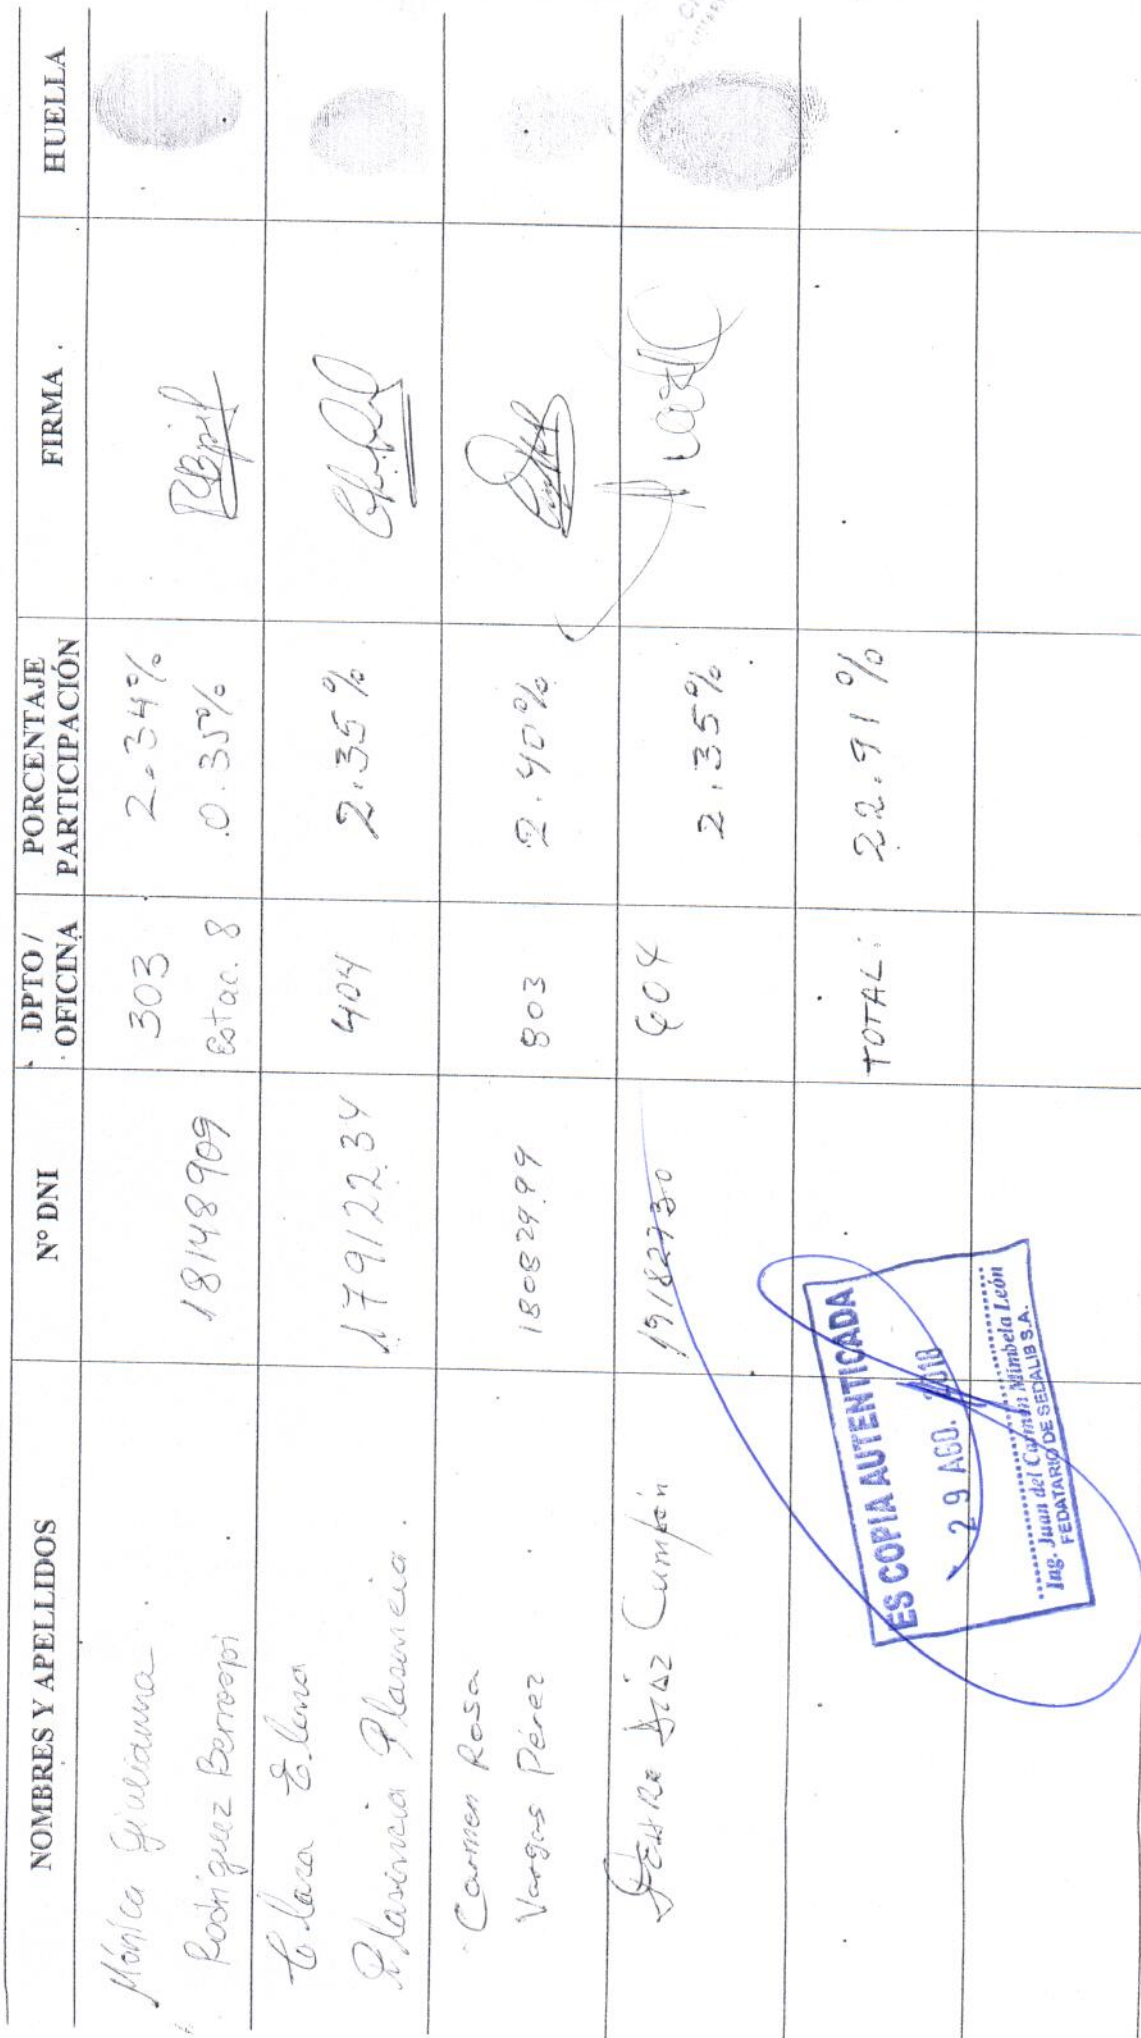 NOMBRES Y APELLIDOS
Nº DNI
DPTO /
OFICINA
PORCENTAJE
PARTICIPACIÓN
FIRMA
HUELLA
Mónica Giulianna
Rodríguez Berrospi
18148909
303
Estac. 8
2.34%
0.35%
Clara Elena
Plasencia Plasencia
17912234
404
2.35%
Carmen Rosa
Vargas Pérez
18082999
803
2.40%
Díaz Cumpén
19182730
604
2.35%
TOTAL:
22.91%
ES COPIA AUTENTICADA
29 AGO. 2018
Ing. Juan del Carmen Mimbela León
FEDATARIO DE SEDALIB S.A.